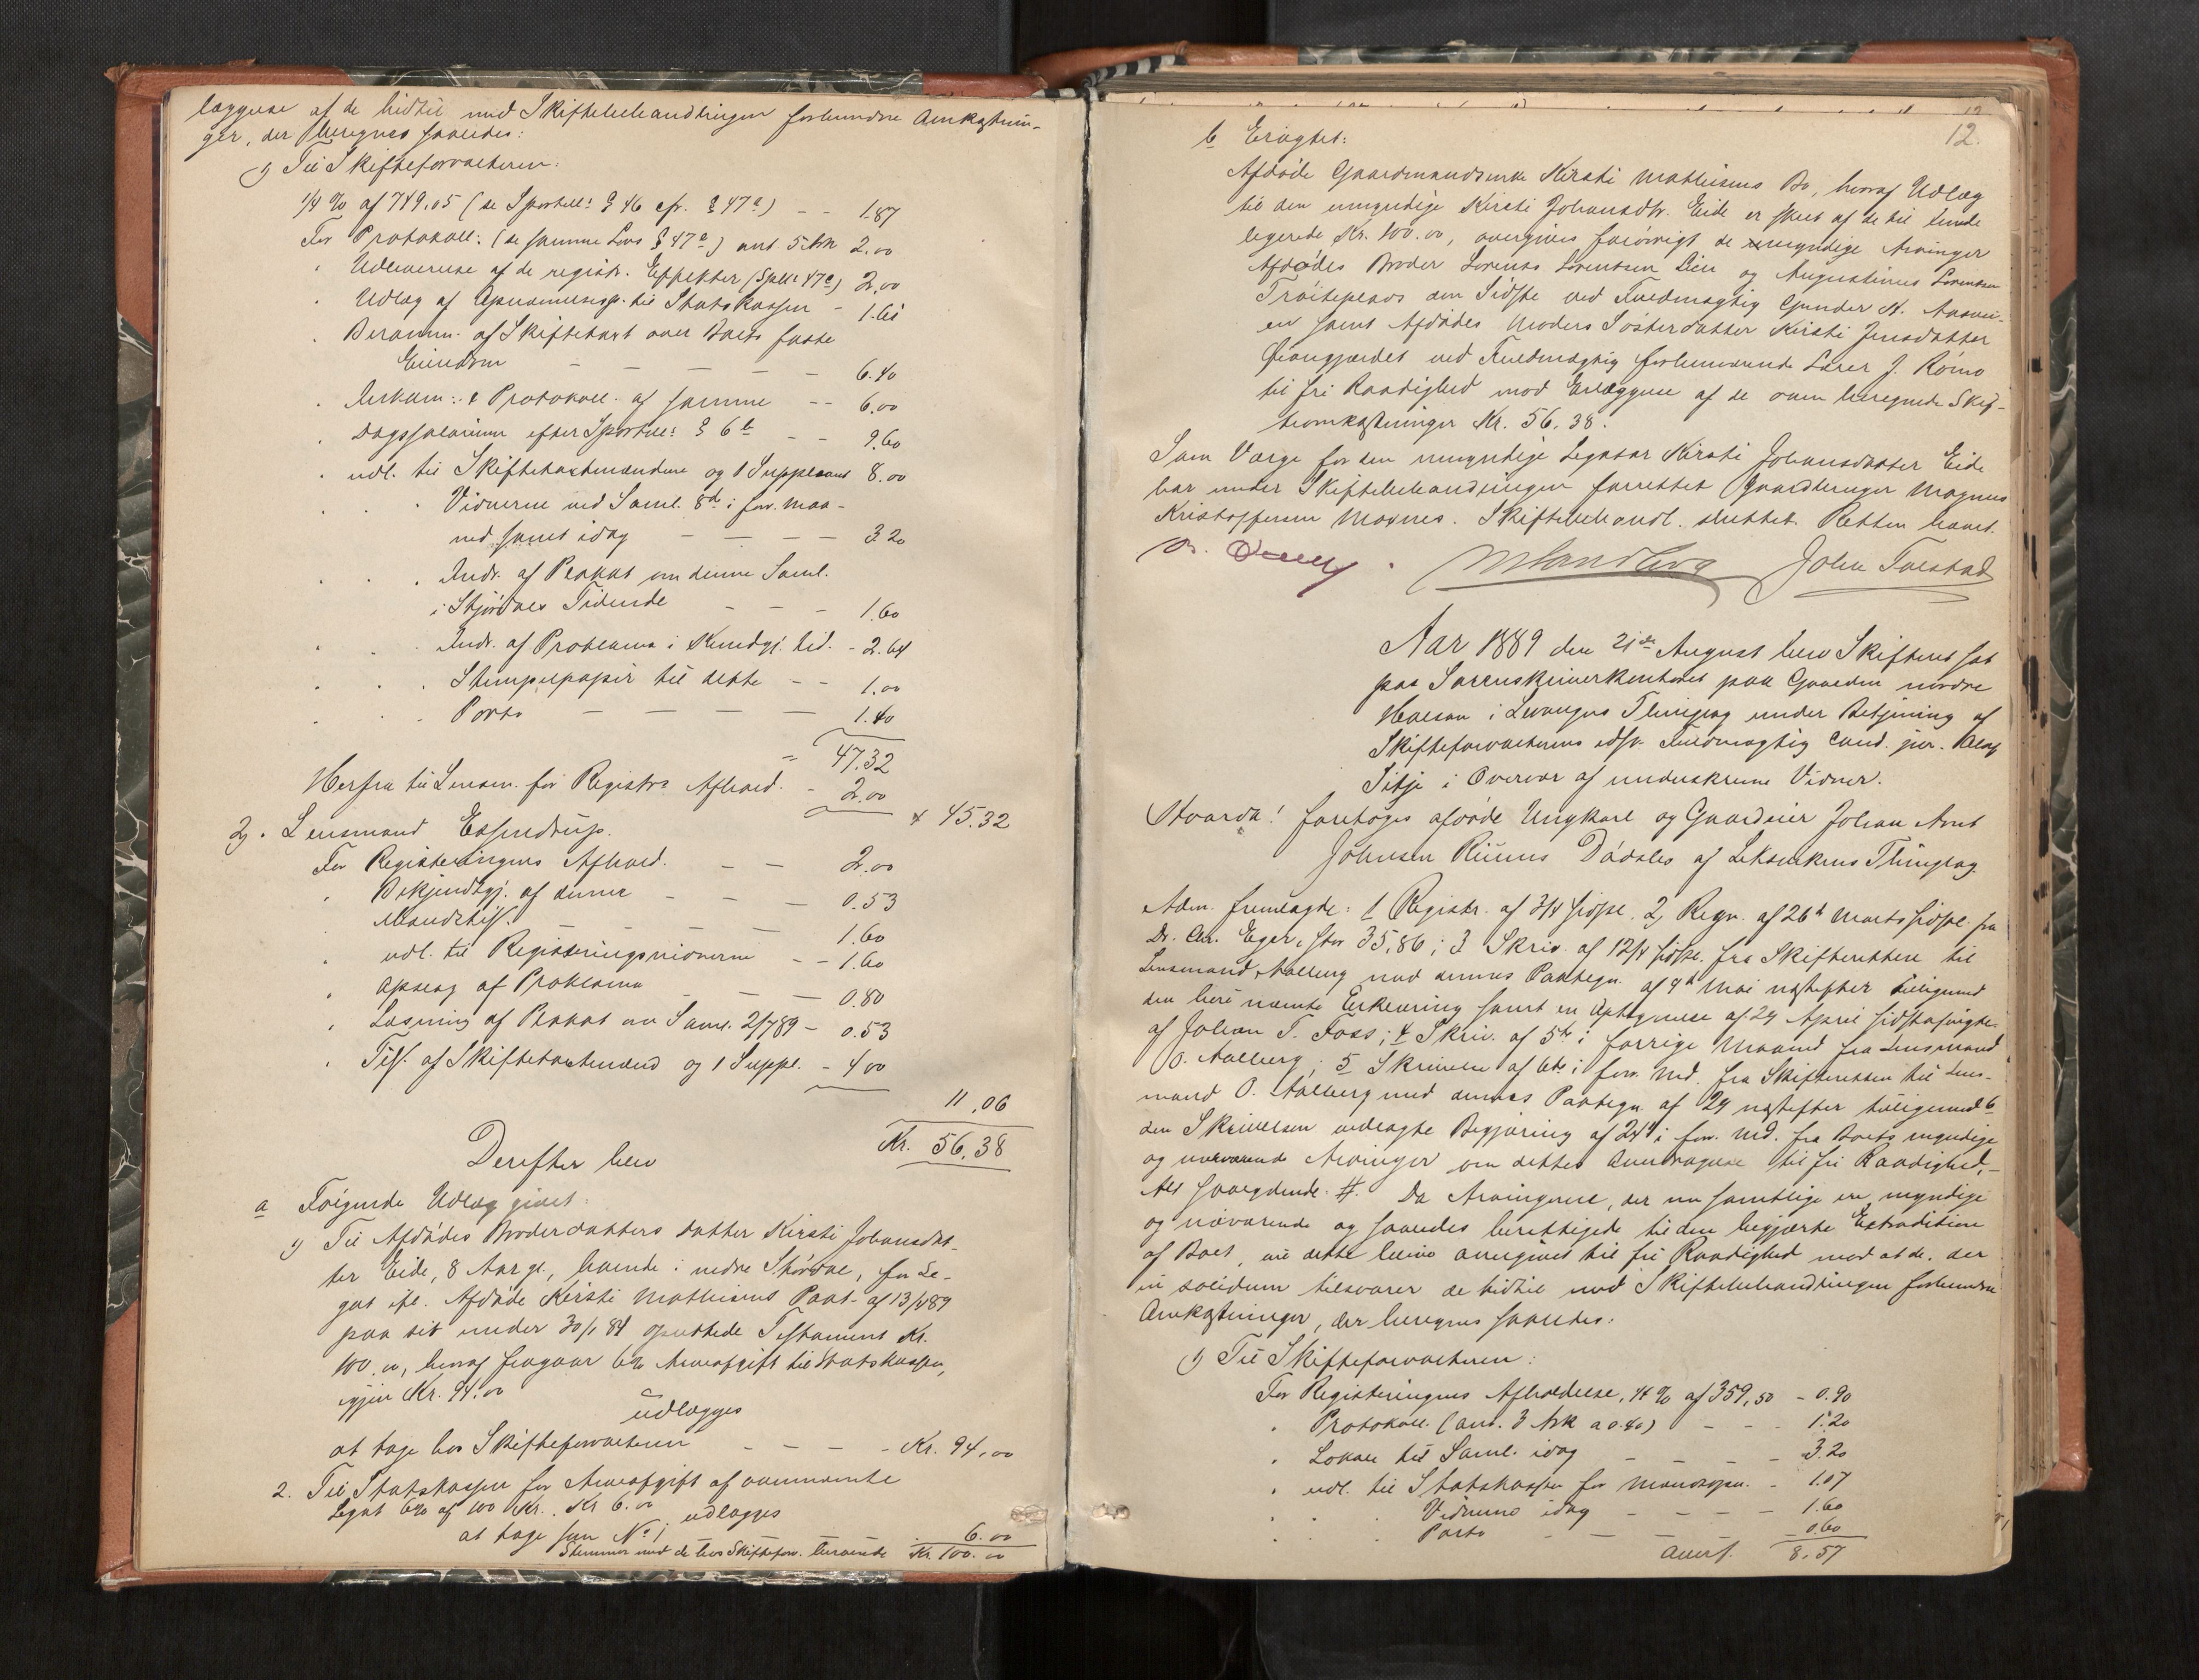 læggelse af de hidtil med Skiftebehandlingen forbundne Omkostnin-
ger, der beregnes saaledes:
1) Til Skifteforvalteren:
1/4 % af 749.05 (se Sportell: § 46 cfr. § 47a) - - 1.87
For Protokoll: (se samme Lovs § 47a) ant 5 Ark 2.00
" Udleverelse af de registr. Effekter (Spll: 47c) 2.00
" Udlæg af Opnævnelsesgb. til Statskassen - 1.61
" Beramm. af Skiftetaxt over Boets faste
Eiendom - - - - - 6.40
" Inkam: & Protokoll. af samme - - 6.00
" Dagssalarium efter Sportell: § 6b - - 9.60
" udl. til Skiftetaxtmændene og 1 Suppleant 8.00
" " " Vidnerne ved Saml. 8d i forr. Maa-
ned samt idag - - - - 3.20
" " " Indr. af Plakat om denne Saml.
i Stjørdalens Tidende - - - 1.60
" " " Indr. af Proklama i Kundgj. tid. - 2.64
" " " Stempelpapir til dette - - 1.00
" " " Porto - - - - 1.40
= 47.32
Herfra til Lensm. for Registrs Afhold. - 2.00
+ 45.32
2). Lensmand Essendrup.
For Registeringens Afhold. - - 2.00
" Bekjendtgj. af denne - - - 0.53
" Mandstils. - - - - 1.60
" udl. til Registeringsvidnerne - - 1.60
" Opslag af Proklama - - - 0.80
" Læsning af Plakat om Saml. 2/7 89 - 0.53
" Tils. af Skiftetaxtmænd og 1 Suppl. - 4.00
11.06
Kr. 56.38
Derefter blev
a Følgende Udlæg gjort:
1) Til Afdødes Broderdatters datter Kirsti Johansdat-
ter Eide, 8 Aar gl., boende i nedre Stjørdal, for Le-
gat ifl. Afdøde Kirsti Mathisens Paat. af 13/1 89
paa sit under 30/1 84 oprettede Testament Kr.
100.00, hvoraf fragaar 6% Arveafgift til Statskassen,
igjen Kr. 94.00
udlægges
at tage hos Skifteforvalteren - - - - Kr. 94.00
2. Til Statskassen for Arveafgift af ovennævnte
Legat 6% af 100 Kr. Kr 6.00
udlægges
at tage som No 1 6.00
Stemmer med de hos Skifteforv. beroende Kr. 100.00
12.
b Eragtet:
Afdøde Gaardmandsenke Kirsti Mathisens Bo, hvoraf Udlæg
til den umyndige Kirsti Johansdtr. Eide er skeet af de til hende
legerede Kr. 100.00, overgives forøvrigt de myndige Arvinger
Afdødes Broder Lorents Lorentsen Lien og Augustinus Lorentsen
Trøiteplads den Sidste ved Fuldmægtig Gunder A.
en samt Afdødes Moders Søsterdatter Kirsti Jensdatter
ved Fuldmægtig forhenværende Lærer J. Rømo
til fri Raadighed mod Erlæggelse af de oven beregnede Skif-
teomkostninger Kr. 56.38.
Som Værge for den umyndige Legatar Kirsti Johansdatter Eide
har under Skiftebehandlingen forrettet Gaardbruger Magnus
Kristoffersen Moxnes. Skiftebehandl. sluttet. Retten hævet.
M Sandberg John Tuestad
Aar 1889 den 21de August blev Skifteret sat
paa Sorenskriverkontoret paa Gaarden nordre
Halsan i Levangers Thinglag under Betjening af
Skifteforvalterens edsv. Fuldmægtig cand. jur. Olaf
Sitje i Overvær af underskrevne Vidner.
Hvorda! foretoges afdøde Ungkarl og Gaardeier Johan Arnt
Johnsen Riiens Dødsbo af Leksvikens Thinglag.
Adm. fremlagde: 1 Registr. af 3/4 sidstl. 2, Regn. af 26d Marts sidstl. fra
Dr. Chr. Eger, stor 35,86; 3 Skriv. af 12/4 sidstl. fra Skifteretten til
Lensmand Aalberg med dennes Paategn. af 4d Mai næstefter tilligemed
den heri nævnte Erklæring samt en Optegnelse af 29 April sidstafvigte
af Johan T. Foss; 4 Skriv. af 5te i forrige Maaned fra Lensmand
O. Aalberg; 5 Skrivelse af 6te i forr. Md. fra Skifteretten til Lens-
mand O. Aalberg med dennes Paategn. af 29 næstefter tilligemed 6
den Skrivelsen vedlagte Begjæring af 24d i forr. Md. fra Boets myndige
og nærværende Arvinger om dettes Overdragelse til fri Raadighed, -
Alt saalydende: #. Da Arvingerne, der nu samtlige ere myndige
og nærværende og saaledes berettigede til den begjærte Extradition
af Boet, vil dette blive overgivet til fri Raadighed mod at de, der
in solidum tilsvarer de hidtil med Skiftebehandlingen forbundne
Omkostninger, der beregnes saaledes:
1) Til Skifteforvalteren:
For Registeringens Afholdelse, 1/4 % af 359,50 - 0.90
" Protokoll. (ant. 3 Ark a 0.40) - - - 1.20
" Lokale til Saml. idag - - - - 3.20
" udl. til Statskassen for Mandsopn. - 1.07
" " " Vidnerne idag - - - - 1.60
" " " Porto - - - - - 0.60
Overf. 8.57